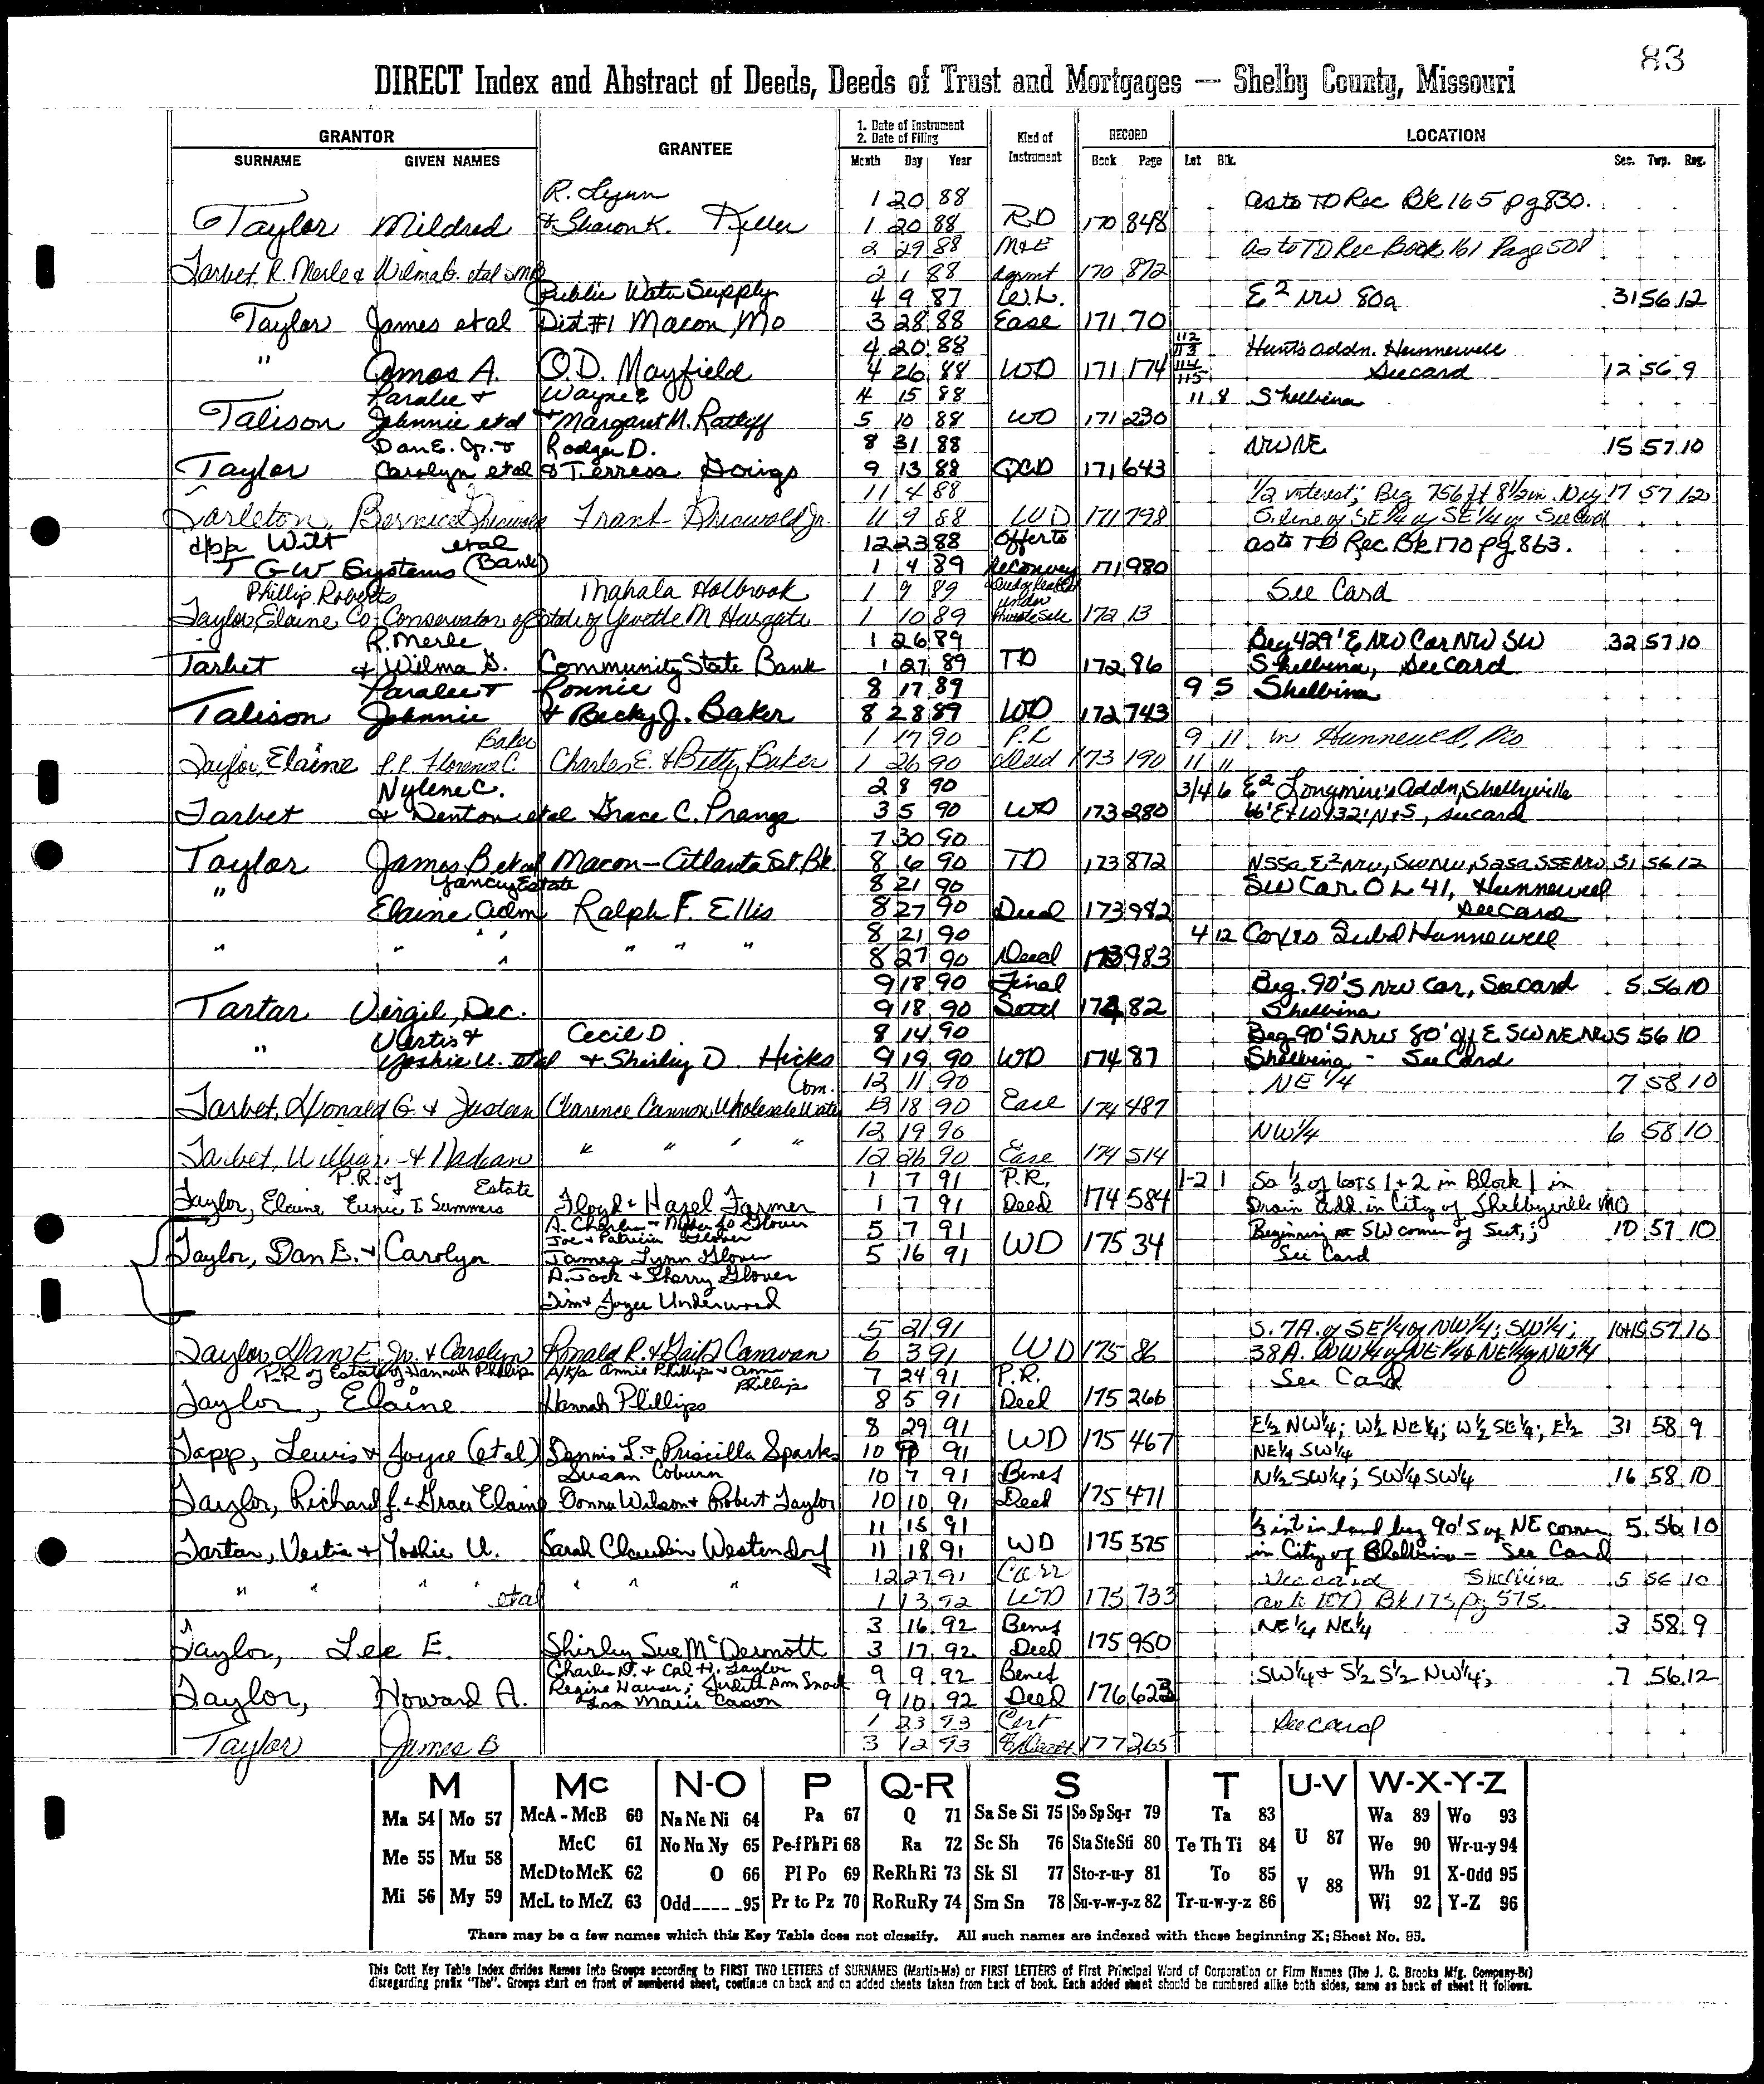 83
DIRECT Index and Abstract of Deeds, Deeds of Trust and Mortgages — Shelby County, Missouri
GRANTOR GRANTEE 1. Date of Instrument 2. Date of Filing Kind of Instrument RECORD LOCATION
SURNAME GIVEN NAMES Month Day Year Book Page Lot Blk. Sec. Twp. Rng.
R. Lynn 1 20 88 as to TD Rec Bk 165 pg 830.
Taylor Mildred & Sharon K. Keller 1 20 88 RD 170 848
2 29 88 M&E as to TD Rec Book 161 Page 508
Tarbet, R. Merle & Wilma G. etal 2 1 88 Agrmt 170 872
Public Water Supply 4 9 87 W.L. E2 NW 80a 31 56 12
Taylor James et al Dist #1 Macon, Mo 3 28 88 Ease 171 70
4 20 88 112 113 Hunt's addn. Hunnewell
" Amos A. O.D. Mayfield 4 26 88 WD 171 174 114 115 See card 12 56 9
Paralee & Wayne E 4 15 88 11 8 Shelbina
Talison Johnnie et al & Margaret M. Ratliff 5 10 88 WD 171 230
Dan E. Jr. & Rodger D. 8 31 88 NWNE 15 57 10
Taylor Carolyn et al & Terresa Goings 9 13 88 QCD 171 643
11 4 88 1/2 interest; Beg 756 ft 8 1/2 in. 17 57 12
Tarleton, Bernice Griswold Frank Griswold Jr. 11 9 88 WD 171 798 S. line of SE 1/4 of SE 1/4 of See Card
Wilt etal 12 23 88 Offer to as to TD Rec Bk 170 pg 863.
T G W Systems (Bank) 1 4 89 Reconvey 171 980
Phillip Roberts Mahala Holbrook 1 9 89 under See Card
Taylor, Elaine Co. Conservator of Estate of Yevette M 1 10 89 Private Sale 172 13
R. Merle 1 26 89 Beg 429' E NW Cor NW SW 32 57 10
Tarbet & Wilma G. Community State Bank 1 27 89 TD 172 86 Shelbina, See Card
Paralee & Ronnie 8 17 89 9 5 Shelbina
Talison Johnnie & Becky J. Baker 8 28 89 WD 172 743
Baker 1 17 90 P.R. 9 11 in Hunnewell, Mo
Taylor, Elaine P.R. Florence C. Charles E. & Betty Baker 1 26 90 Deed 173 190 11 11
Nylene C. 2 8 90 3/4 6 E2 Longmire's Addn, Shelbyville
Tarbet & Denton et al Grace C. Prange 3 5 90 WD 173 280 66' E&W 132' N&S, see card
7 30 90
Taylor James B et al Macon-Atlanta St. Bk. 8 6 90 TD 173 872 N55a E2 NW, SWNW, S25a SSENW 31 56 12
Yancy Estate 8 21 90 SW Cor. OL 41, Hunnewell
" Elaine Adm Ralph F. Ellis 8 27 90 Deed 173 982 See Card
8 21 90 4 12 Cox's Subd Hunnewell
" " " " " " 8 27 90 Deed 173 983
9 18 90 Final Beg. 90' S NW Cor, See Card 5 56 10
Tartar Virgil, Dec. 9 18 90 Settl 174 82 Shelbina
Vertis & Cecil D 8 14 90 Beg 90' S NW 80' off E SW NE NW 5 56 10
" Yoshie U. et al & Shirley D. Hicks 9 19 90 WD 174 87 Shelbina - See Card
Com. 12 11 90 NE 1/4 7 58 10
Tarbet, Donald G. & Justean Clarence Cannon Wholesale Water 12 18 90 Ease 174 487
12 19 90 NW 1/4 6 58 10
Tarbet, William & Nadean " " " " 12 26 90 Ease 174 514
P.R. of Estate 1 7 91 P.R. 1-2 1 So 1/2 of Lots 1 & 2 in Block 1 in
Taylor, Elaine Eunice T. Summers Floyd & Hazel Farmer 1 7 91 Deed 174 584 Drain Add. in City of Shelbyville MO
A. Charles & Glover 5 7 91 Beginning at SW corner of Sect; 10 57 10
Joe & Patricia Glover
Taylor, Dan E. & Carolyn James Lynn Glover 5 16 91 WD 175 34 See Card
A. Jack & Sherry Glover
Tim & Joyce Underwood
5 21 91 S. 7A. of SE 1/4 of NW 1/4; SW 1/4; 10+15 57 10
Taylor, Dan E. Jr. & Carolyn Ronald R. & Gail D Canavan 6 3 91 WD 175 86 38A. NW 1/4 of NE 1/4 & NE 1/4 of NW 1/4
P.R of Estate of Hannah Phillips A/k/a Annie Phillips & Ann Phillips 7 24 91 P.R. See Card
Taylor, Elaine Hannah Phillips 8 5 91 Deed 175 266
8 29 91 E 1/2 NW 1/4; W 1/2 NE 1/4; W 1/2 SE 1/4; E 1/2 31 58 9
Tapp, Lewis & Joyce (et al) Dennis L. & Priscilla Sparks 10 91 WD 175 467 NE 1/4 SW 1/4
Susan Coburn 10 7 91 Benef N 1/2 SW 1/4; SW 1/4 SW 1/4 16 58 10
Taylor, Richard J. & Grace Elaine Donna Wilson & Robert Taylor 10 10 91 Deed 175 471
11 15 91 1/2 int in land beg 90' S of NE corner 5 56 10
Tartar, Vertis & Yoshie U. Sarah Claudin Westendorf 11 18 91 WD 175 575 in City of Shelbina - See Card
12 27 91 Corr See card Shelbina 5 56 10
" " " etal " " " 1 13 92 WD 175 733 as to WD Bk 175 pg 575.
3 16 92 Benef NE 1/4 NE 1/4 3 58 9
Taylor, Lee E. Shirley Sue McDermott 3 17 92 Deed 175 950
Charles D. & Taylor 9 9 92 Benef SW 1/4 & S 1/2 S 1/2 NW 1/4; 7 56 12
Regine Hauser; Judith Ann
Taylor, Howard A. Marie 9 10 92 Deed 176 623
1 23 93 Cert See card
Taylor James B 3 12 93 of Death 177 265
M Mc N-O P Q-R S T U-V W-X-Y-Z
Ma 54 Mo 57 McA - McB 60 Na Ne Ni 64 Pa 67 Q 71 Sa Se Si 75 So Sp Sq-r 79 Ta 83 Wa 89 Wo 93
Me 55 Mu 58 McC 61 No Nu Ny 65 Pe-f Ph Pi 68 Ra 72 Sc Sh 76 Sta Ste Sti 80 Te Th Ti 84 U 87 We 90 Wr-u-y 94
McD to McK 62 O 66 Pl Po 69 Re Rh Ri 73 Sk Sl 77 Sto-r-u-y 81 To 85 V 88 Wh 91 X-Odd 95
Mi 56 My 59 McL to McZ 63 Odd 95 Pr to Pz 70 Ro Ru Ry 74 Sm Sn 78 Su-v-w-y-z 82 Tr-u-w-y-z 86 Wi 92 Y-Z 96
There may be a few names which this Key Table does not classify. All such names are indexed with those beginning X; Sheet No. 95.
This Cott Key Table Index divides Names into Groups according to FIRST TWO LETTERS of SURNAMES (Martin-Ma) or FIRST LETTERS of First Principal Word of Corporation or Firm Names (The J. C. Brooks Mfg. Company-Br)
disregarding prefix "The". Groups start on front of numbered sheet, continue on back and on added sheets taken from back of book. Each added sheet should be numbered alike both sides, same as back of sheet it follows.